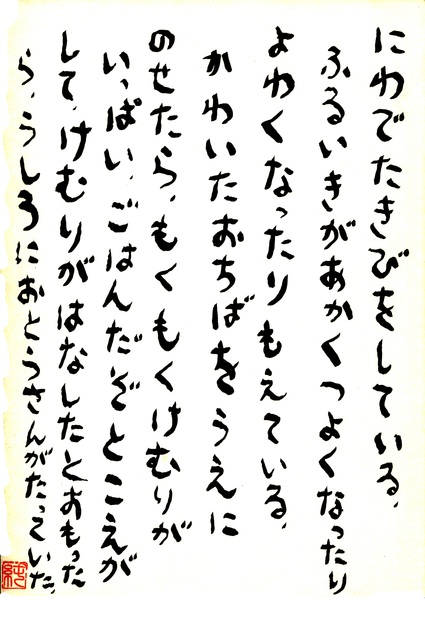 にわでたきびをしている、
ふるいきがあかくつよくなったり
よわくなったりもえている、
かわいたおちばをうえに
のせたら、もくもくけむりが
いっぱい、ごはんだぞとこえが
して、けむりがはなしたとおもった
ら、うしろにおとうさんがたっていた、
純